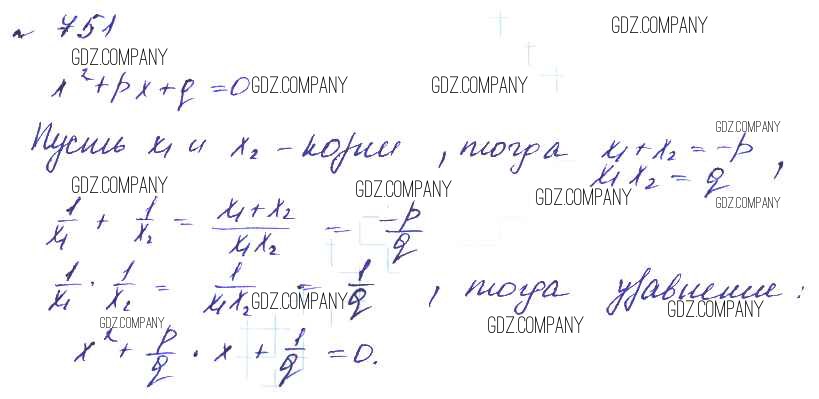 № 751
GDZ.COMPANY
GDZ.COMPANY
x² + px + q = 0 GDZ.COMPANY GDZ.COMPANY
Пусть x₁ и x₂ – корни, тогда x₁ + x₂ = -p GDZ.COMPANY
x₁x₂ = q,
GDZ.COMPANY GDZ.COMPANY GDZ.COMPANY GDZ.COMPANY
1/x₁ + 1/x₂ = (x₁ + x₂)/(x₁x₂) = -p/q
1/x₁ · 1/x₂ = 1/(x₁x₂) = 1/q, тогда уравнение:
GDZ.COMPANY GDZ.COMPANY
GDZ.COMPANY GDZ.COMPANY
x² + p/q · x + 1/q = 0.